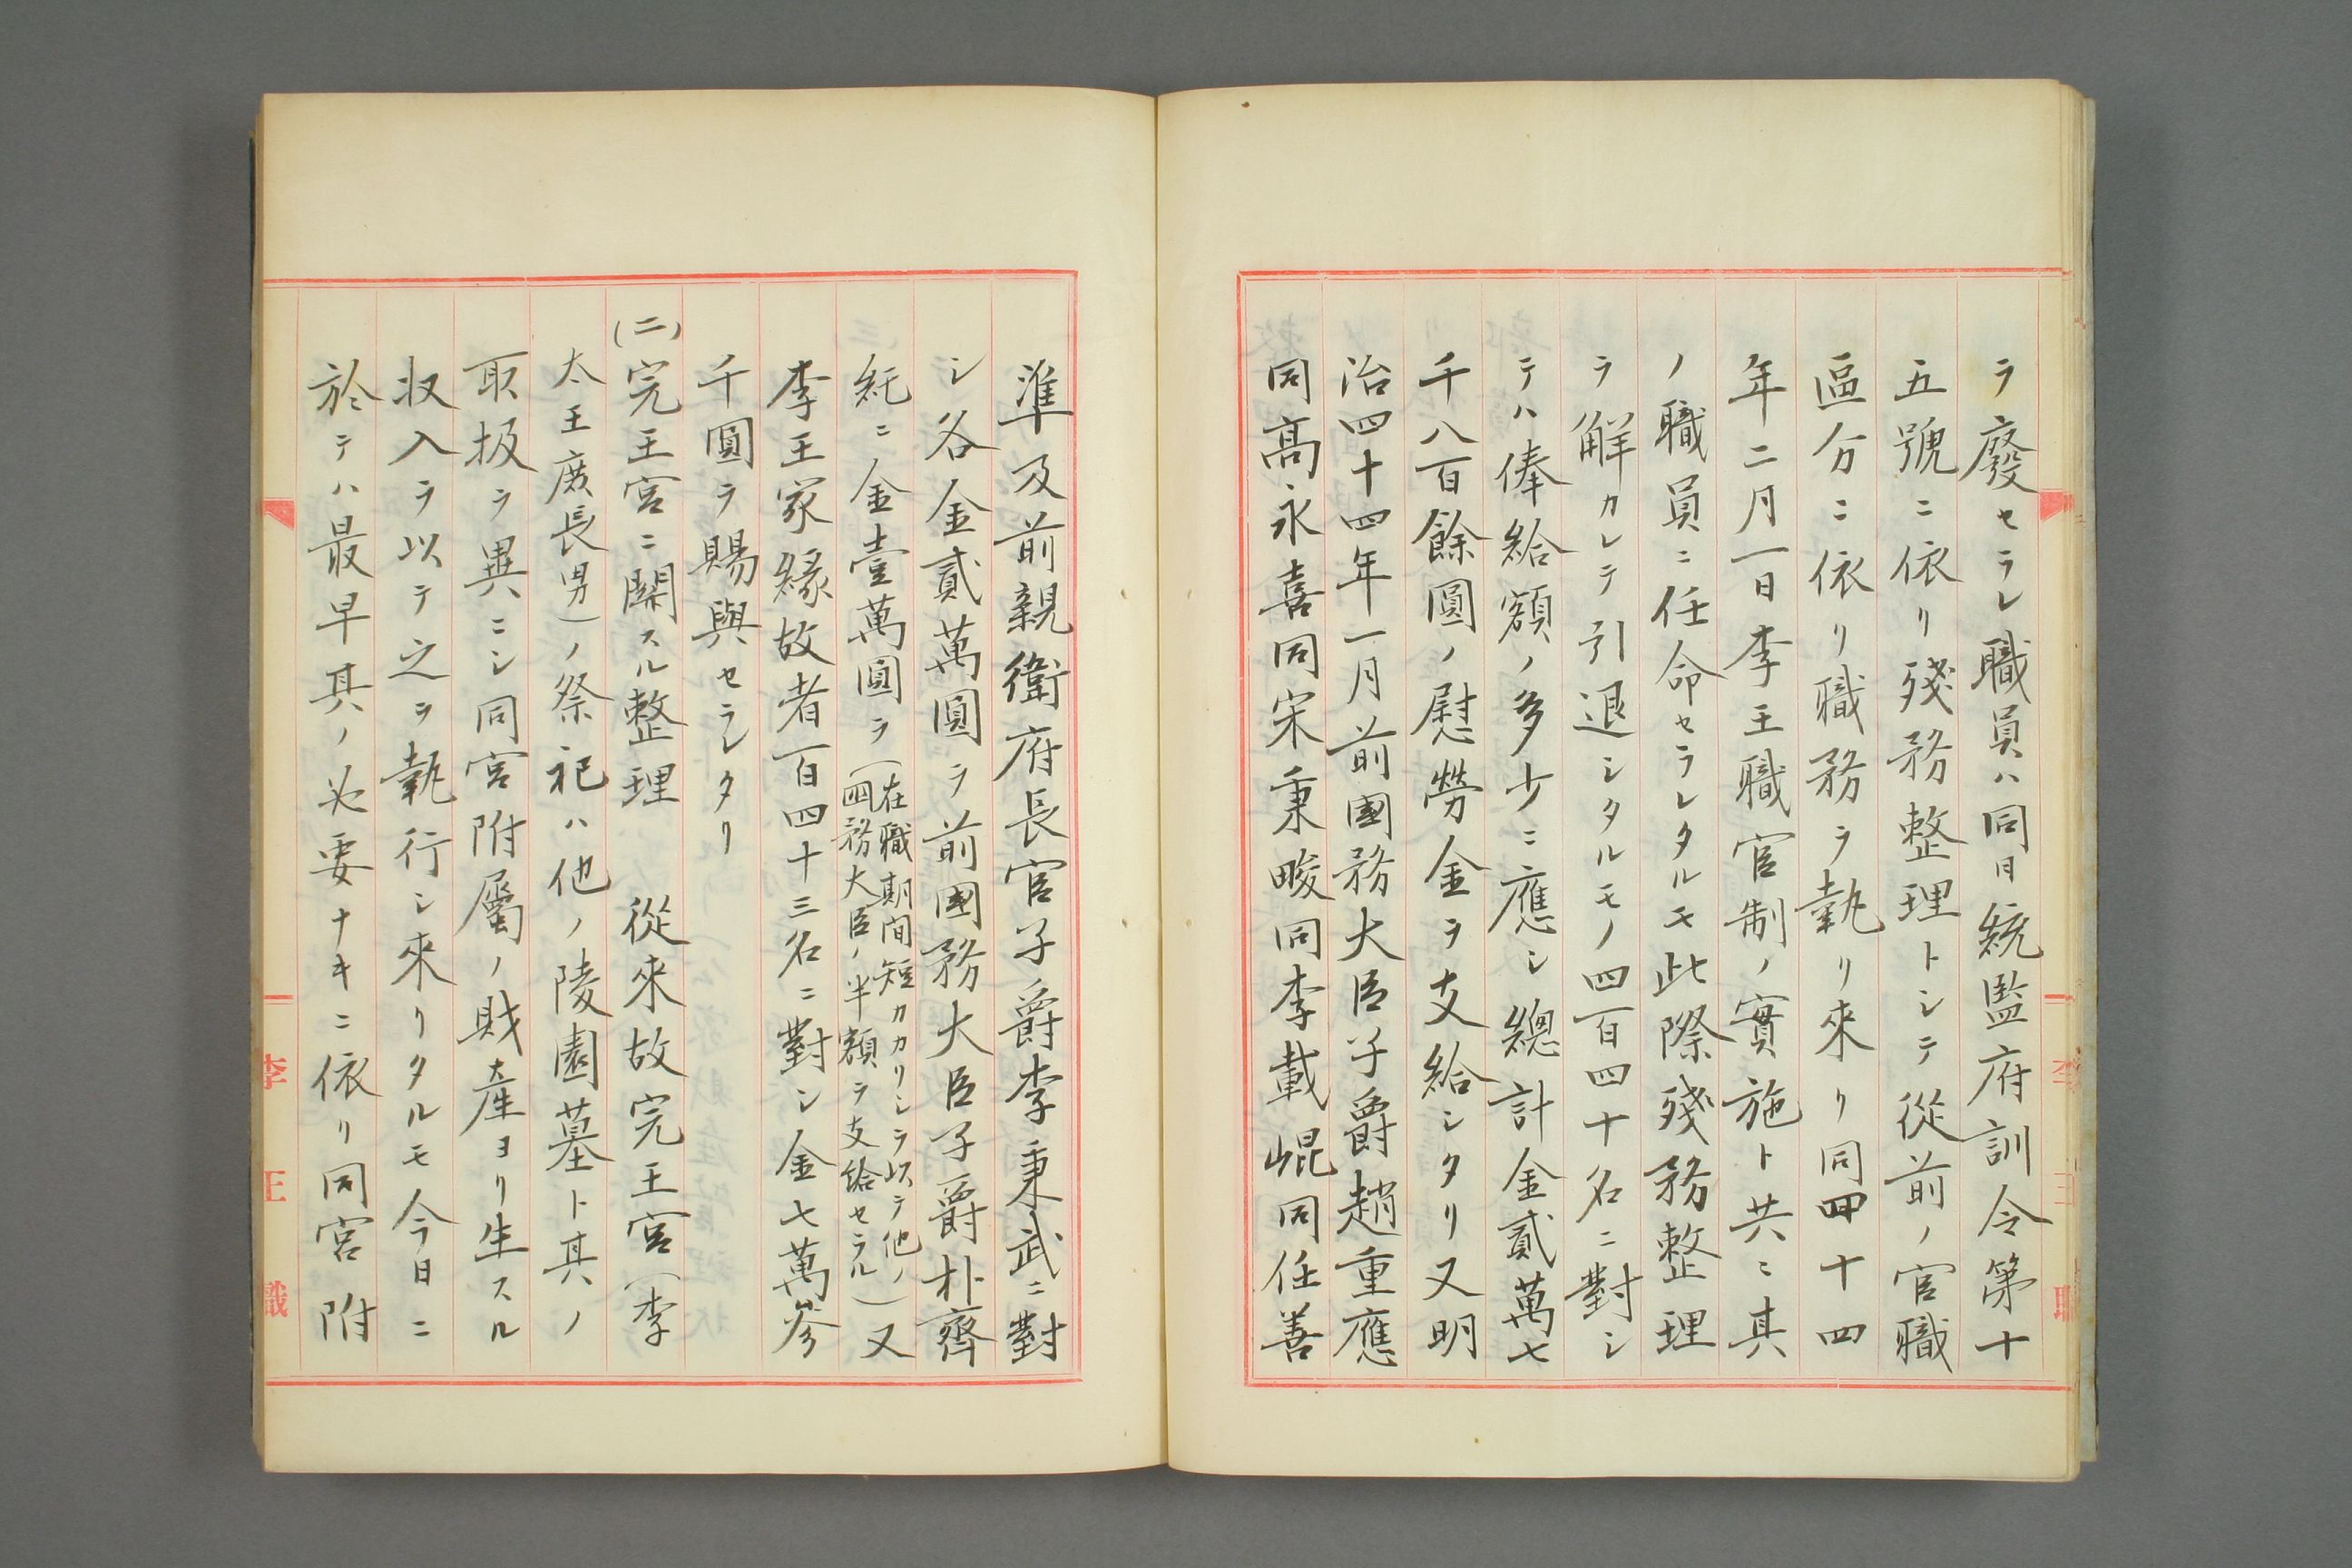 ヲ廢セラレ職員ハ同日統監府訓令第十
五號ニ依リ殘務整理トシテ從前ノ官職
區分ニ依リ職務ヲ執リ來リ同四十四
年二月一日李王職官制ノ實施ト共ニ其
ノ職員ニ任命セラレタルモ此際殘務整理
ヲ解カレテ引退シタルモノ四百四十名ニ對シ
テハ俸給額ノ多少ニ應シ總計金貳萬七
千八百餘圓ノ慰勞金ヲ支給シタリ又明
治四十四年一月前國務大臣子爵趙重應
同高永喜同宋秉畯同李載崐同任善
準及前親衛府長官子爵李秉武ニ對
シ各金貳萬圓ヲ前國務大臣子爵朴齊
純ニ金壹萬圓ヲ(在職期間短カカリシヲ以テ他ノ
四務大臣ノ半額ヲ支給セラル)又
李王家緣故者百四十三名ニ對シ金七萬參
千圓ヲ賜與セラレタリ
(二)完王宮ニ關スル整理 從來故完王宮(李
太王庶長男)ノ祭祀ハ他ノ陵園墓ト其ノ
取扱ヲ異ニシ同宮附屬ノ財產ヨリ生スル
収入ヲ以テ之ヲ執行シ來リタルモ今日ニ
於テハ最早其ノ必要ナキニ依リ同宮附
李王職
李王職